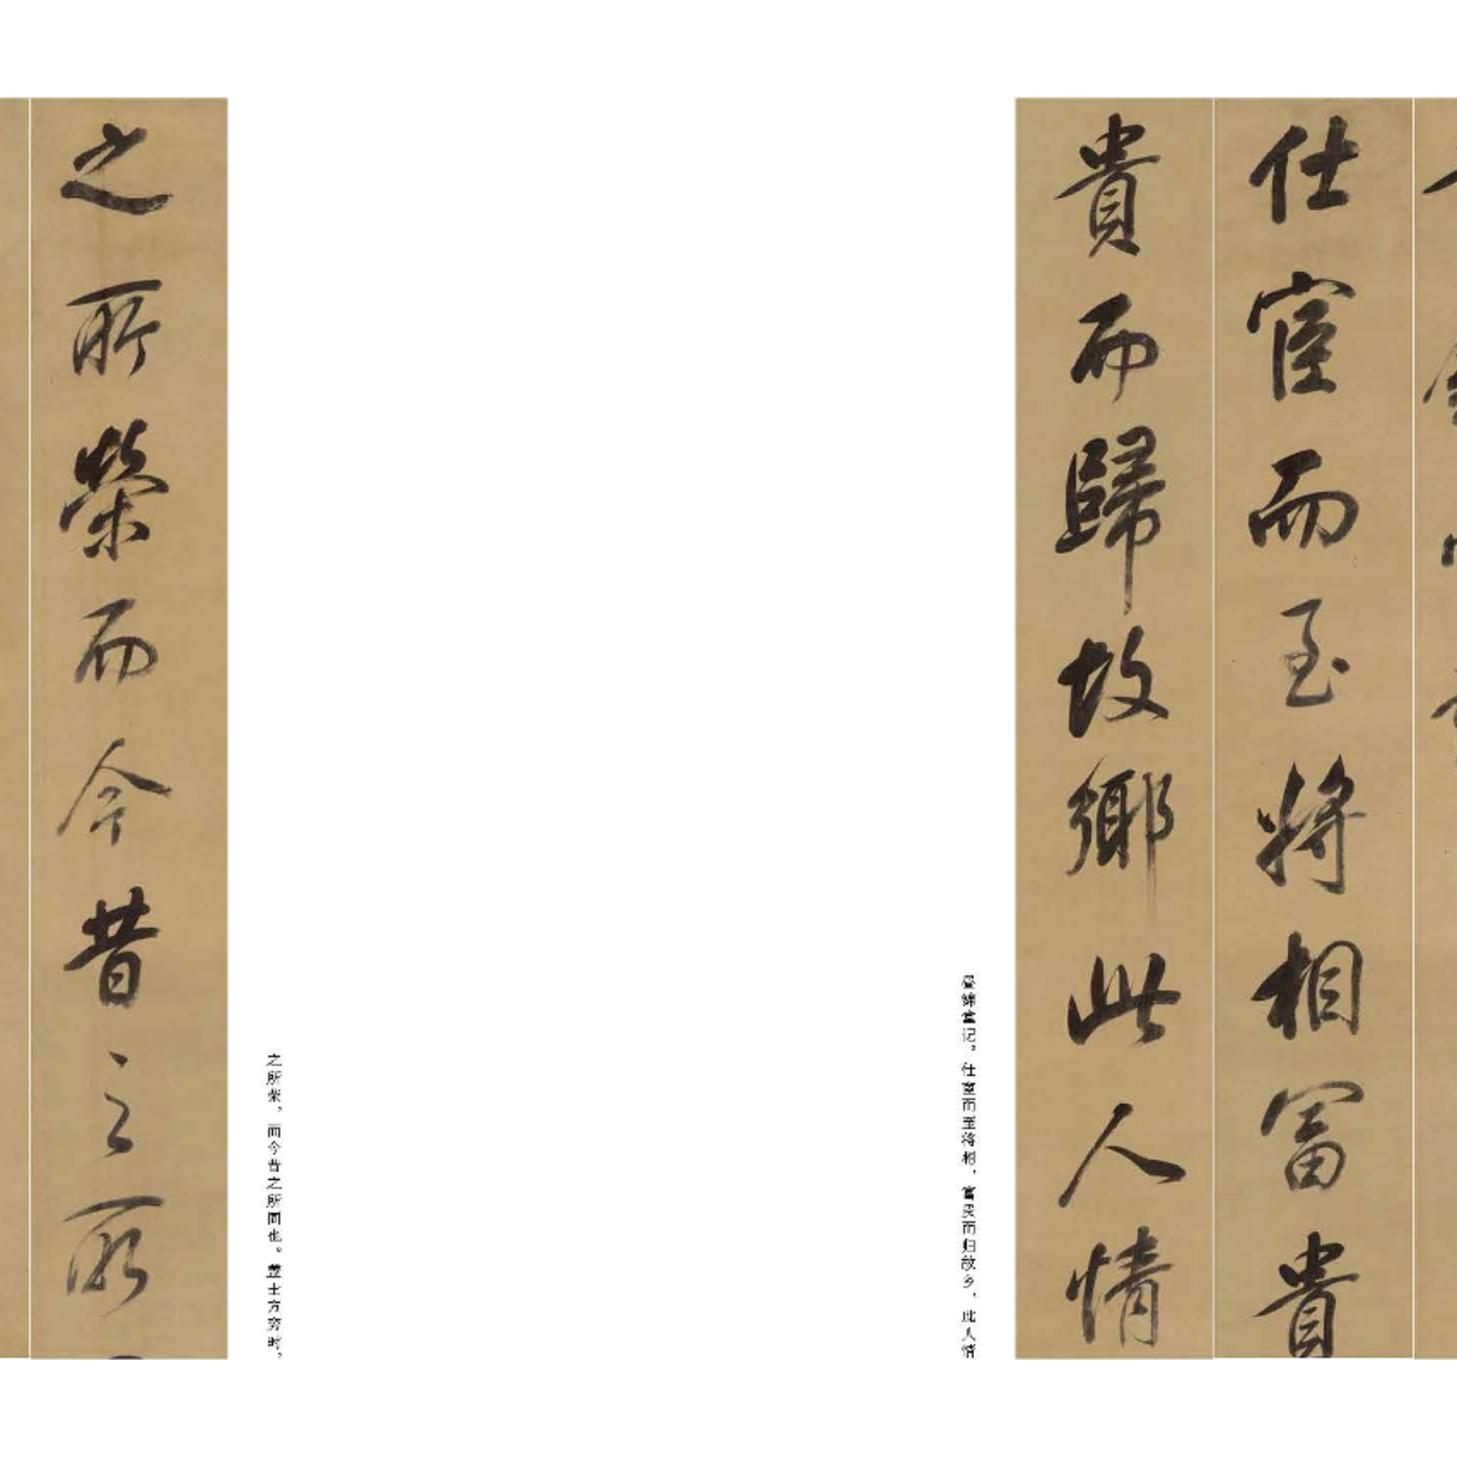 仕宦而至將相富貴
貴而歸故鄉此人情
昼锦堂记，仕宦而至将相，富贵而归故乡，此人情
之所荣，而今昔之所同也。盖士方穷时，
之所榮而今昔之所